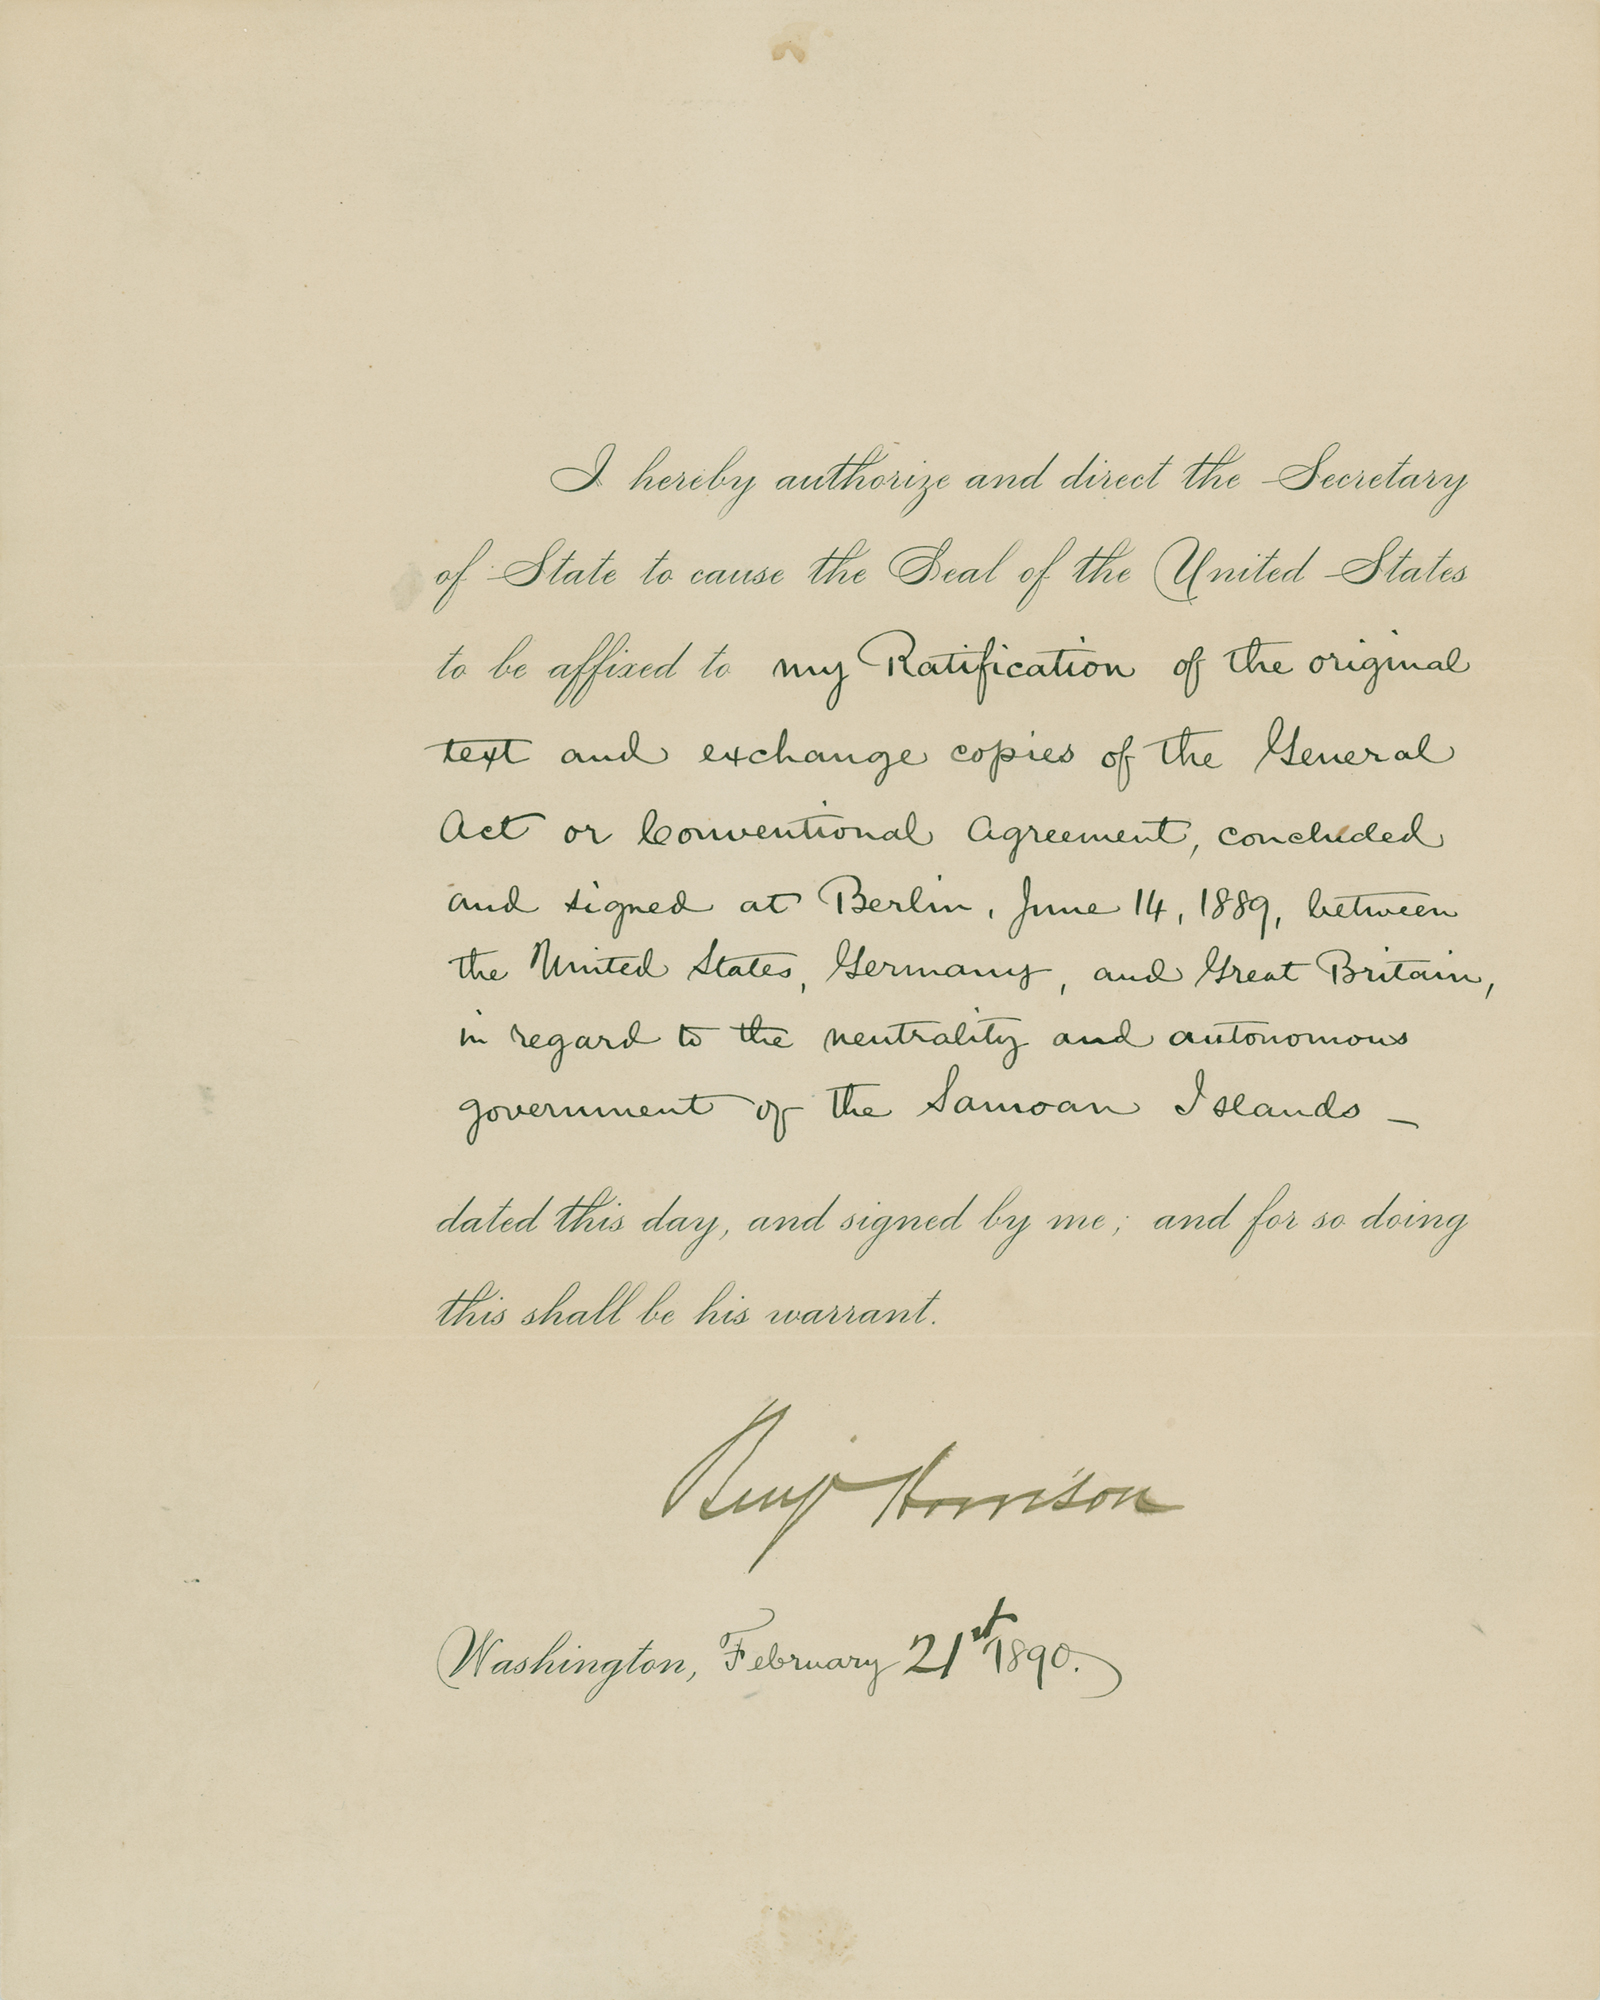 I hereby authorize and direct the Secretary
of State to cause the Seal of the United States
to be affixed to my Ratification of the original
text and exchange copies of the General
Act or Conventional Agreement, concluded
and signed at Berlin, June 14, 1889, between
the United States, Germany, and Great Britain,
in regard to the neutrality and autonomous
government of the Samoan Islands —
dated this day, and signed by me; and for so doing
this shall be his warrant.
Benj Harrison
Washington, February 21st 1890.